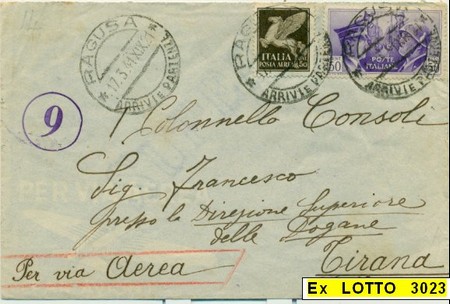 RAGUSA
17.3.41.XIX
ARRIVI E PARTENZE
ITALIA
POSTA AEREA
50
POSTE
ITALIANE
RAGUSA
ARRIVI E PARTENZE
9
Colonnello Consoli
Sig. Francesco
presso la Direzione Superiore
delle Dogane
Tirana
Per via Aerea
Ex LOTTO 3023